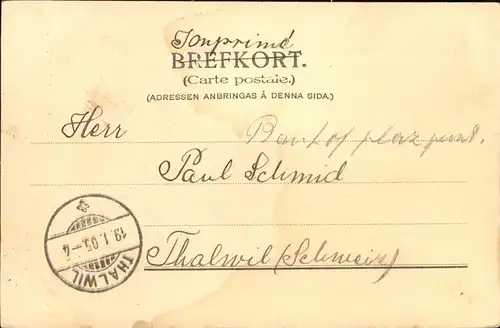 Jonprimé
BREFKORT.
(Carte postale.)
(ADRESSEN ANBRINGAS Å DENNA SIDA.)
Herr
Paul Schmid
Thalwil (Schweiz)
THALWIL
19.1.05.–4